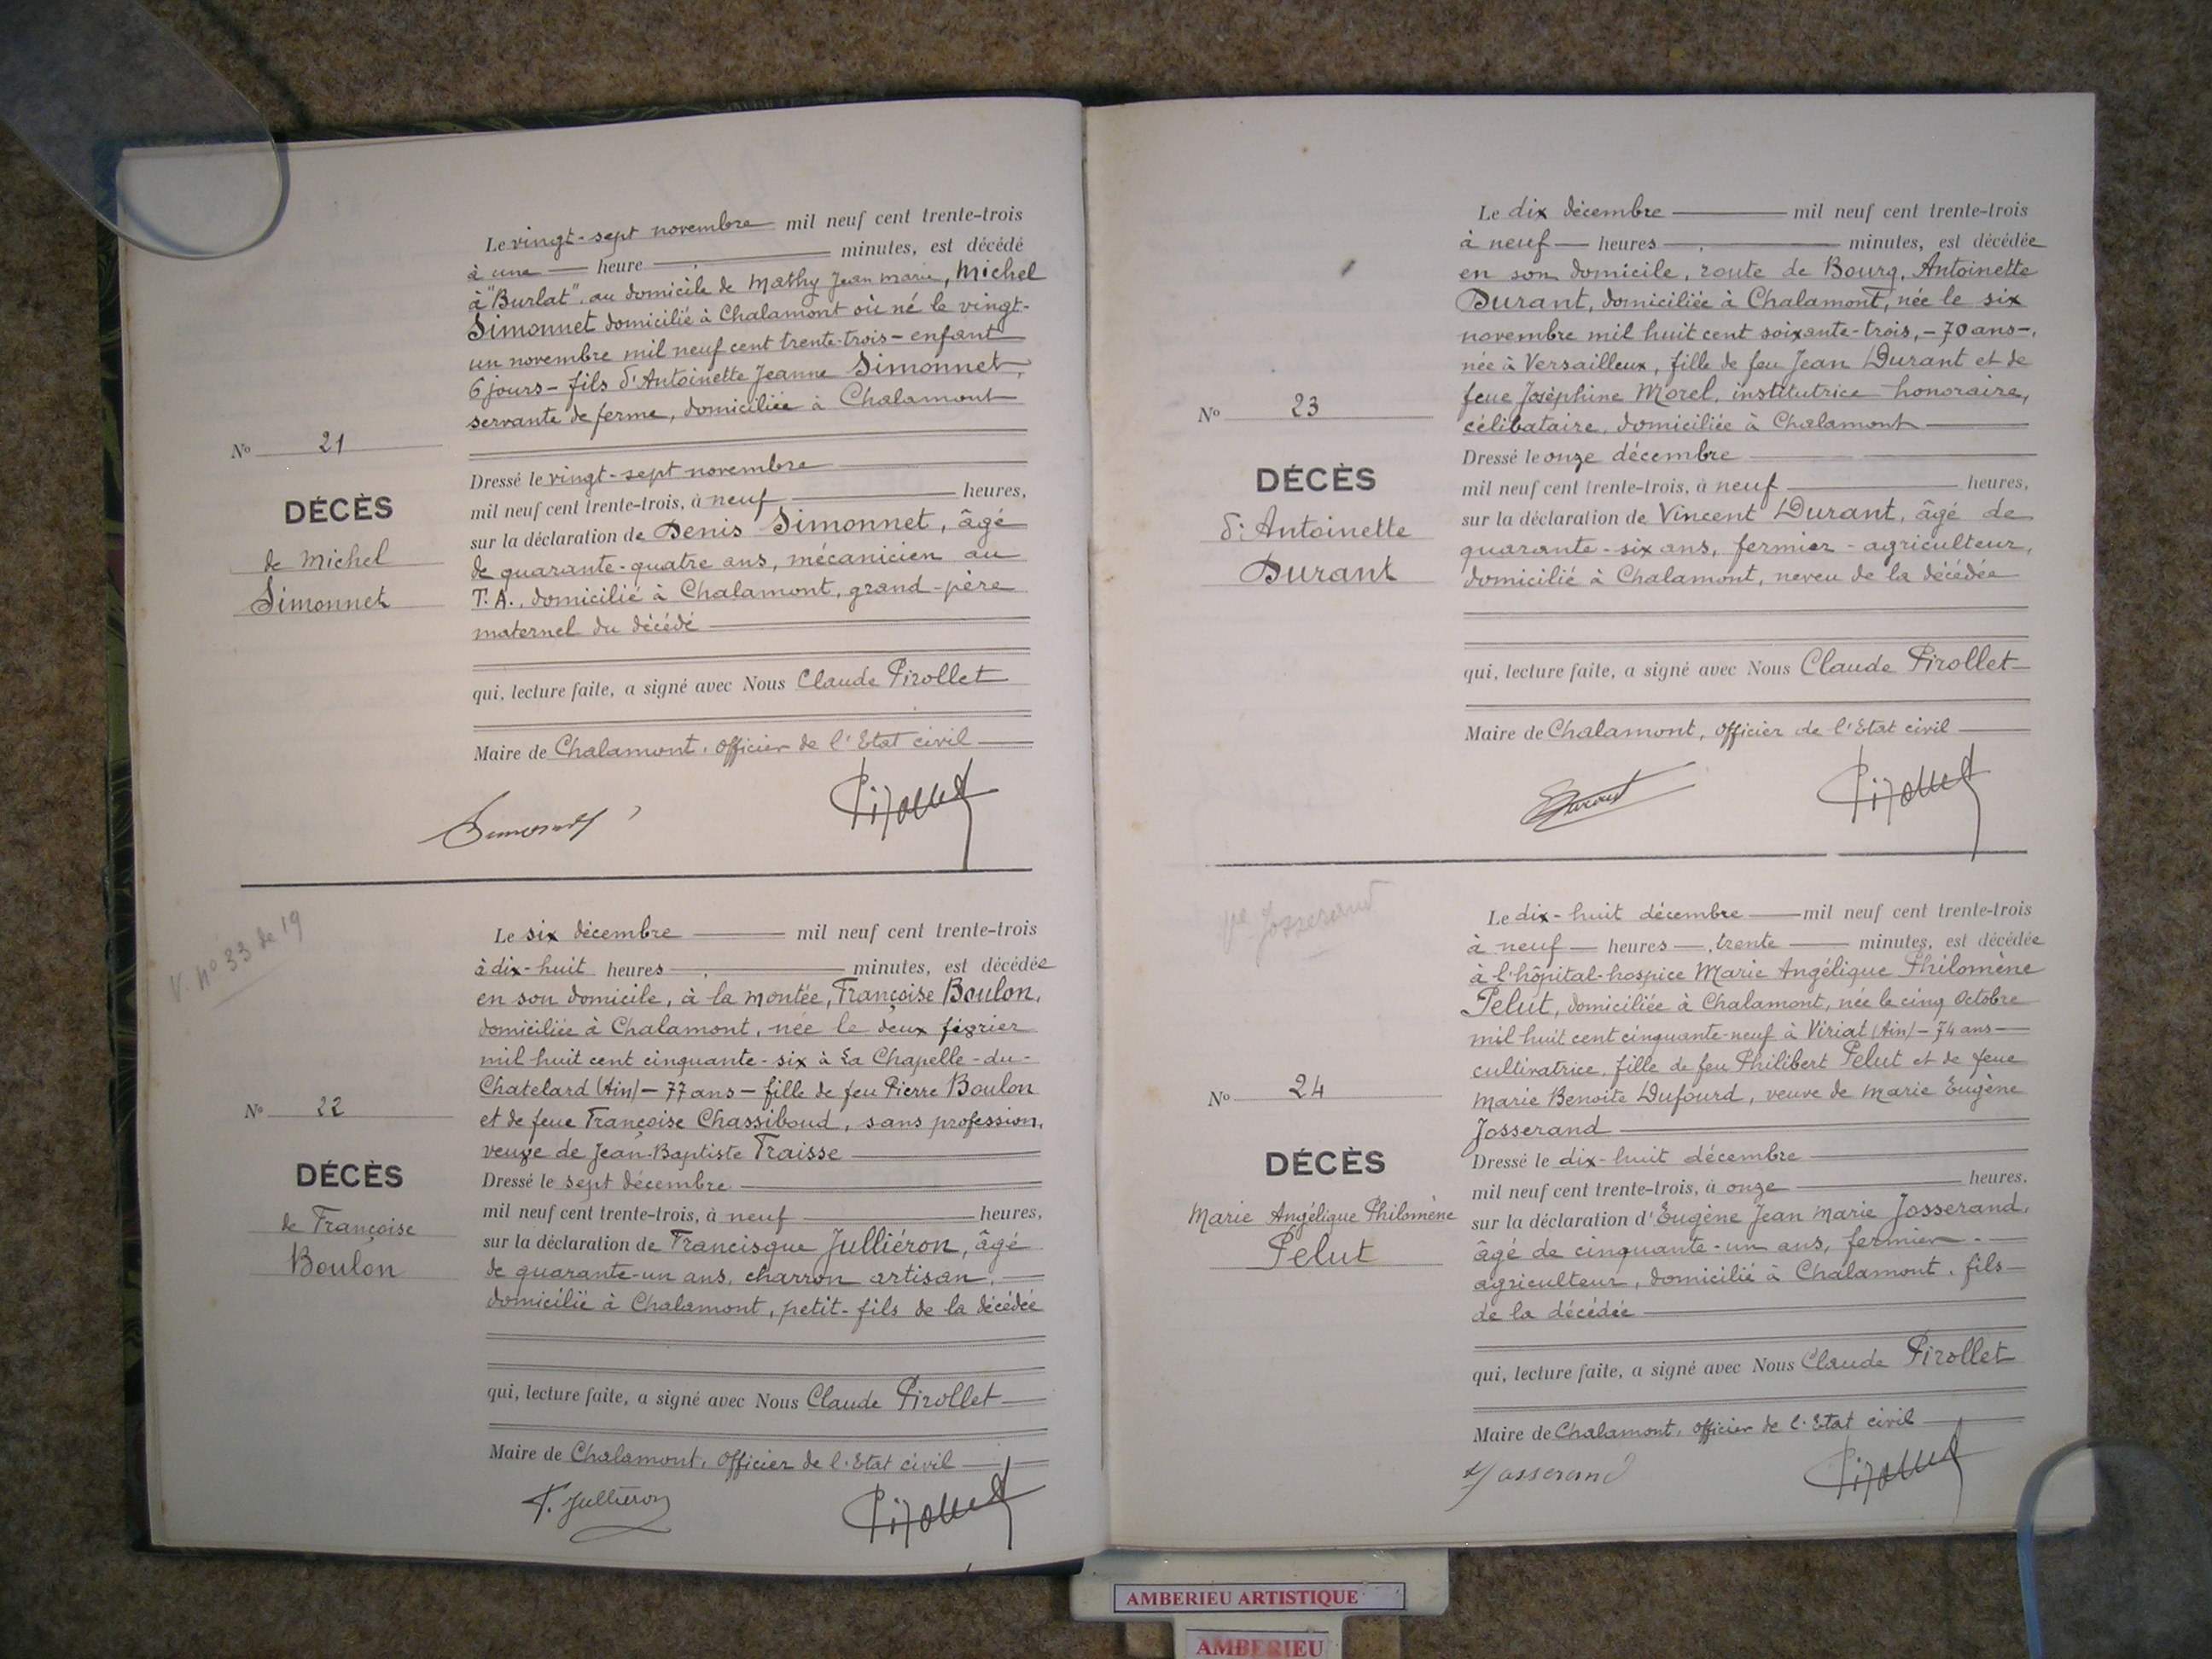 Le vingt-sept novembre mil neuf cent trente-trois
à une heure minutes, est décédé
à "Burlat", au domicile de Mathy Jean Marie, Michel
Simonnet domicilié à Chalamont où né le vingt-
un novembre mil neuf cent trente-trois - enfant
6 jours - fils d'Antoinette Jeanne Simonnet,
servante de ferme, domiciliée à Chalamont
No 21
DÉCÈS
de Michel
Simonnet
Dressé le vingt-sept novembre
mil neuf cent trente-trois, à neuf heures,
sur la déclaration de Denis Simonnet, âgé
de quarante-quatre ans, mécanicien au
T.A., domicilié à Chalamont, grand-père
maternel du décédé
qui, lecture faite, a signé avec Nous Claude Pirollet
Maire de Chalamont, officier de l'Etat civil
V. no 33 de 19
Le six décembre mil neuf cent trente-trois
à dix-huit heures minutes, est décédée
en son domicile, à la montée, Françoise Boulon,
domiciliée à Chalamont, née le deux février
mil huit cent cinquante-six à La Chapelle-du-
Chatelard (Ain) - 77 ans - fille de feu Pierre Boulon
et de feue Françoise Chassiboud, sans profession,
veuve de Jean-Baptiste Traisse
No 22
DÉCÈS
de Françoise
Boulon
Dressé le sept décembre
mil neuf cent trente-trois, à neuf heures,
sur la déclaration de Francisque Julliéron, âgé
de quarante-un ans, charron artisan,
domicilié à Chalamont, petit-fils de la décédée
qui, lecture faite, a signé avec Nous Claude Pirollet
Maire de Chalamont, officier de l'Etat civil
F. Julliéron
Le dix décembre mil neuf cent trente-trois
à neuf heures minutes, est décédée
en son domicile, route de Bourg, Antoinette
Durant, domiciliée à Chalamont, née le six
novembre mil huit cent soixante-trois, - 70 ans -,
née à Versailleux, fille de feu Jean Durant et de
feue Joséphine Morel, institutrice honoraire,
célibataire, domiciliée à Chalamont
No 23
DÉCÈS
d'Antoinette
Durant
Dressé le onze décembre
mil neuf cent trente-trois, à neuf heures,
sur la déclaration de Vincent Durant, âgé de
quarante-six ans, fermier-agriculteur,
domicilié à Chalamont, neveu de la décédée
qui, lecture faite, a signé avec Nous Claude Pirollet
Maire de Chalamont, officier de l'Etat civil
Durant
Josserand
Le dix-huit décembre mil neuf cent trente-trois
à neuf heures, trente minutes, est décédée
à l'hôpital-hospice Marie Angélique Philomène
Pelut, domiciliée à Chalamont, née le cinq Octobre
mil huit cent cinquante-neuf à Viriat (Ain) - 74 ans -
cultivatrice, fille de feu Philibert Pelut et de feue
Marie Benoite Dufourd, veuve de Marie Eugène
Josserand
No 24
DÉCÈS
Marie Angélique Philomène
Pelut
Dressé le dix-huit décembre
mil neuf cent trente-trois, à onze heures,
sur la déclaration d'Eugène Jean Marie Josserand,
âgé de cinquante-un ans, fermier-
agriculteur, domicilié à Chalamont, fils
de la décédée
qui, lecture faite, a signé avec Nous Claude Pirollet
Maire de Chalamont, officier de l'Etat civil
Josserand
AMBERIEU ARTISTIQUE
AMBERIEU